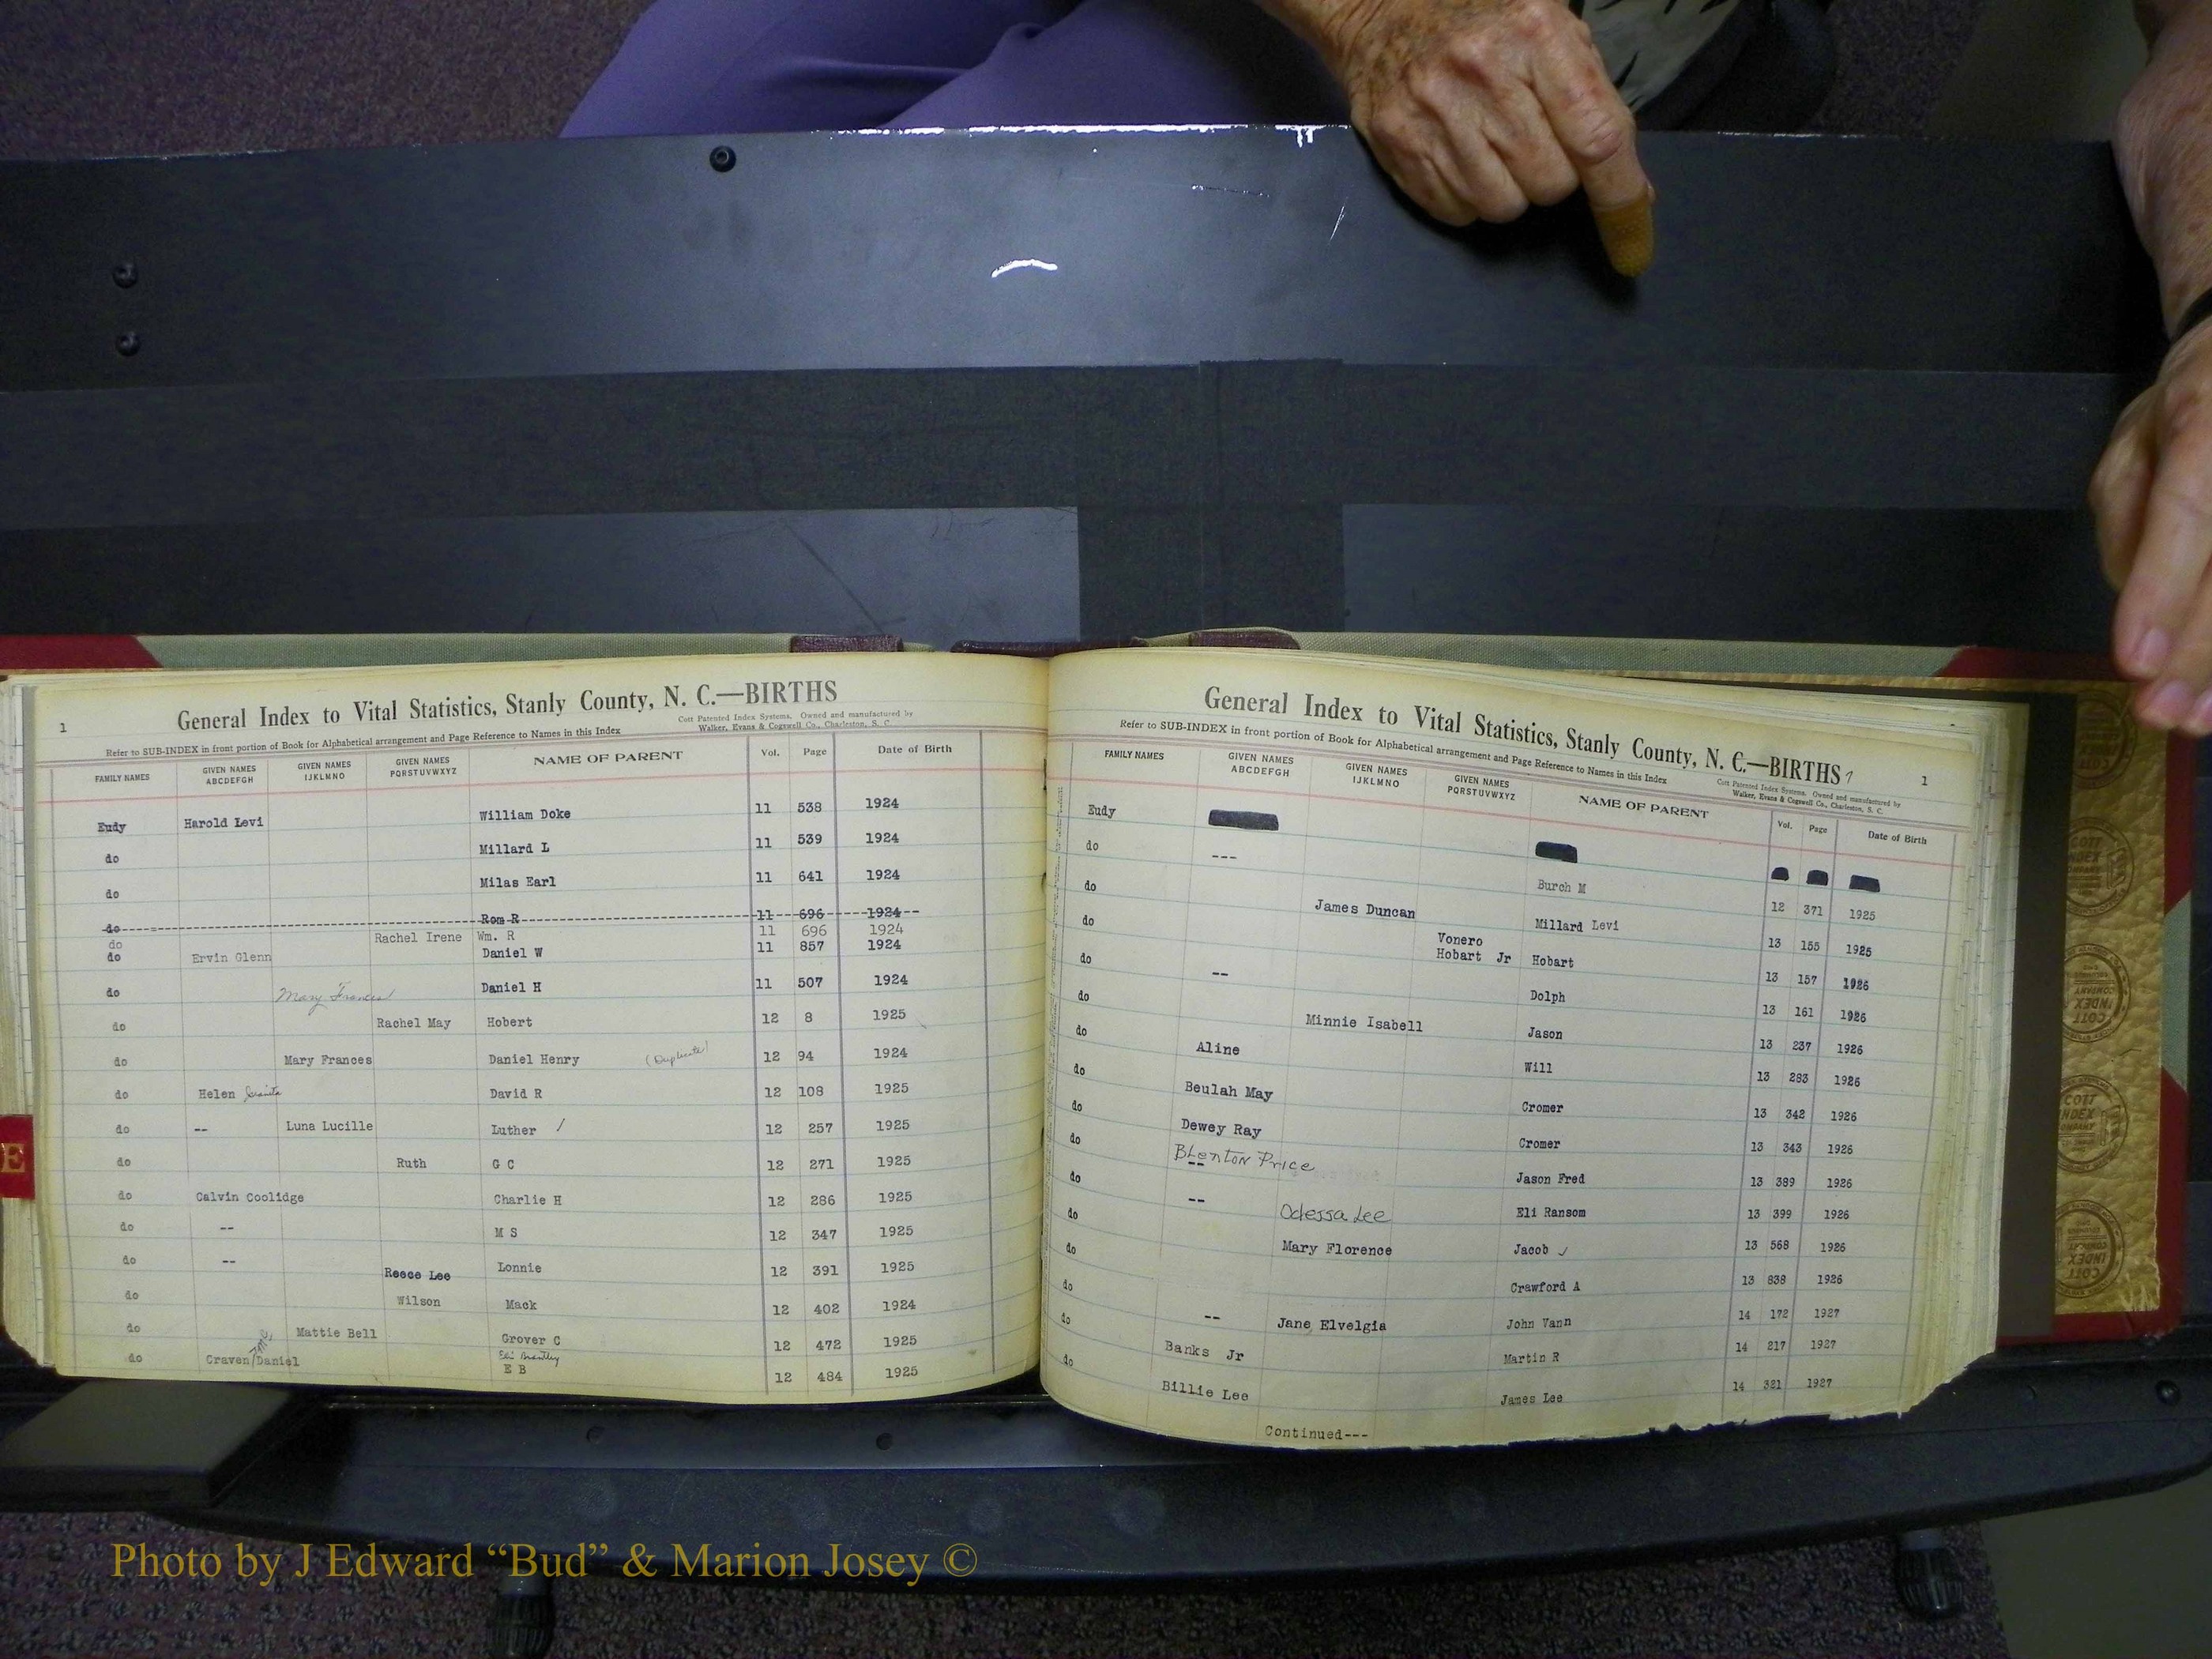 1
General Index to Vital Statistics, Stanly County, N. C.—BIRTHS
Refer to SUB-INDEX in front portion of Book for Alphabetical arrangement and Page Reference to Names in this Index
Cott Patented Index Systems. Owned and manufactured by
Walker, Evans & Cogswell Co., Charleston, S. C.
FAMILY NAMES GIVEN NAMES ABCDEFGH GIVEN NAMES IJKLMNO GIVEN NAMES PQRSTUVWXYZ NAME OF PARENT Vol. Page Date of Birth
Eudy Harold Levi William Doke 11 538 1924
do Millard L 11 539 1924
do Milas Earl 11 641 1924
do Rom R 11 696 1924
do Rachel Irene Wm. R 11 696 1924
do Ervin Glenn Daniel W 11 857 1924
do Mary Frances Daniel H 11 507 1924
do Rachel May Hobert 12 8 1925
do Mary Frances Daniel Henry (Duplicate) 12 94 1924
do Helen David R 12 108 1925
do -- Luna Lucille Luther / 12 257 1925
do Ruth G C 12 271 1925
do Calvin Coolidge Charlie H 12 286 1925
do -- M S 12 347 1925
do -- Lonnie 12 391 1925
do Reece Lee Wilson Mack 12 402 1924
do Mattie Bell Grover C 12 472 1925
do Craven Daniel Eli Brantley E B 12 484 1925
E
General Index to Vital Statistics, Stanly County, N. C.—BIRTHS
1
Refer to SUB-INDEX in front portion of Book for Alphabetical arrangement and Page Reference to Names in this Index
Cott Patented Index Systems. Owned and manufactured by
Walker, Evans & Cogswell Co., Charleston, S. C.
FAMILY NAMES GIVEN NAMES ABCDEFGH GIVEN NAMES IJKLMNO GIVEN NAMES PQRSTUVWXYZ NAME OF PARENT Vol. Page Date of Birth
Eudy
do --- Burch M 12 371 1925
do James Duncan Millard Levi 13 155 1925
do Vonero Hobart Jr Hobart 13 157 1926
do -- Dolph 13 161 1926
do Minnie Isabell Jason 13 237 1926
do Aline Will 13 283 1926
do Beulah May Cromer 13 342 1926
do Dewey Ray Cromer 13 343 1926
do Blenton Price -- Jason Fred 13 389 1926
do -- Odessa Lee Eli Ransom 13 399 1926
do Mary Florence Jacob ✓ 13 568 1926
do Crawford A 13 838 1926
do -- Jane Elvelgia John Vann 14 172 1927
do Banks Jr Martin R 14 217 1927
do Billie Lee James Lee 14 321 1927
Continued---
Photo by J Edward “Bud” & Marion Josey ©